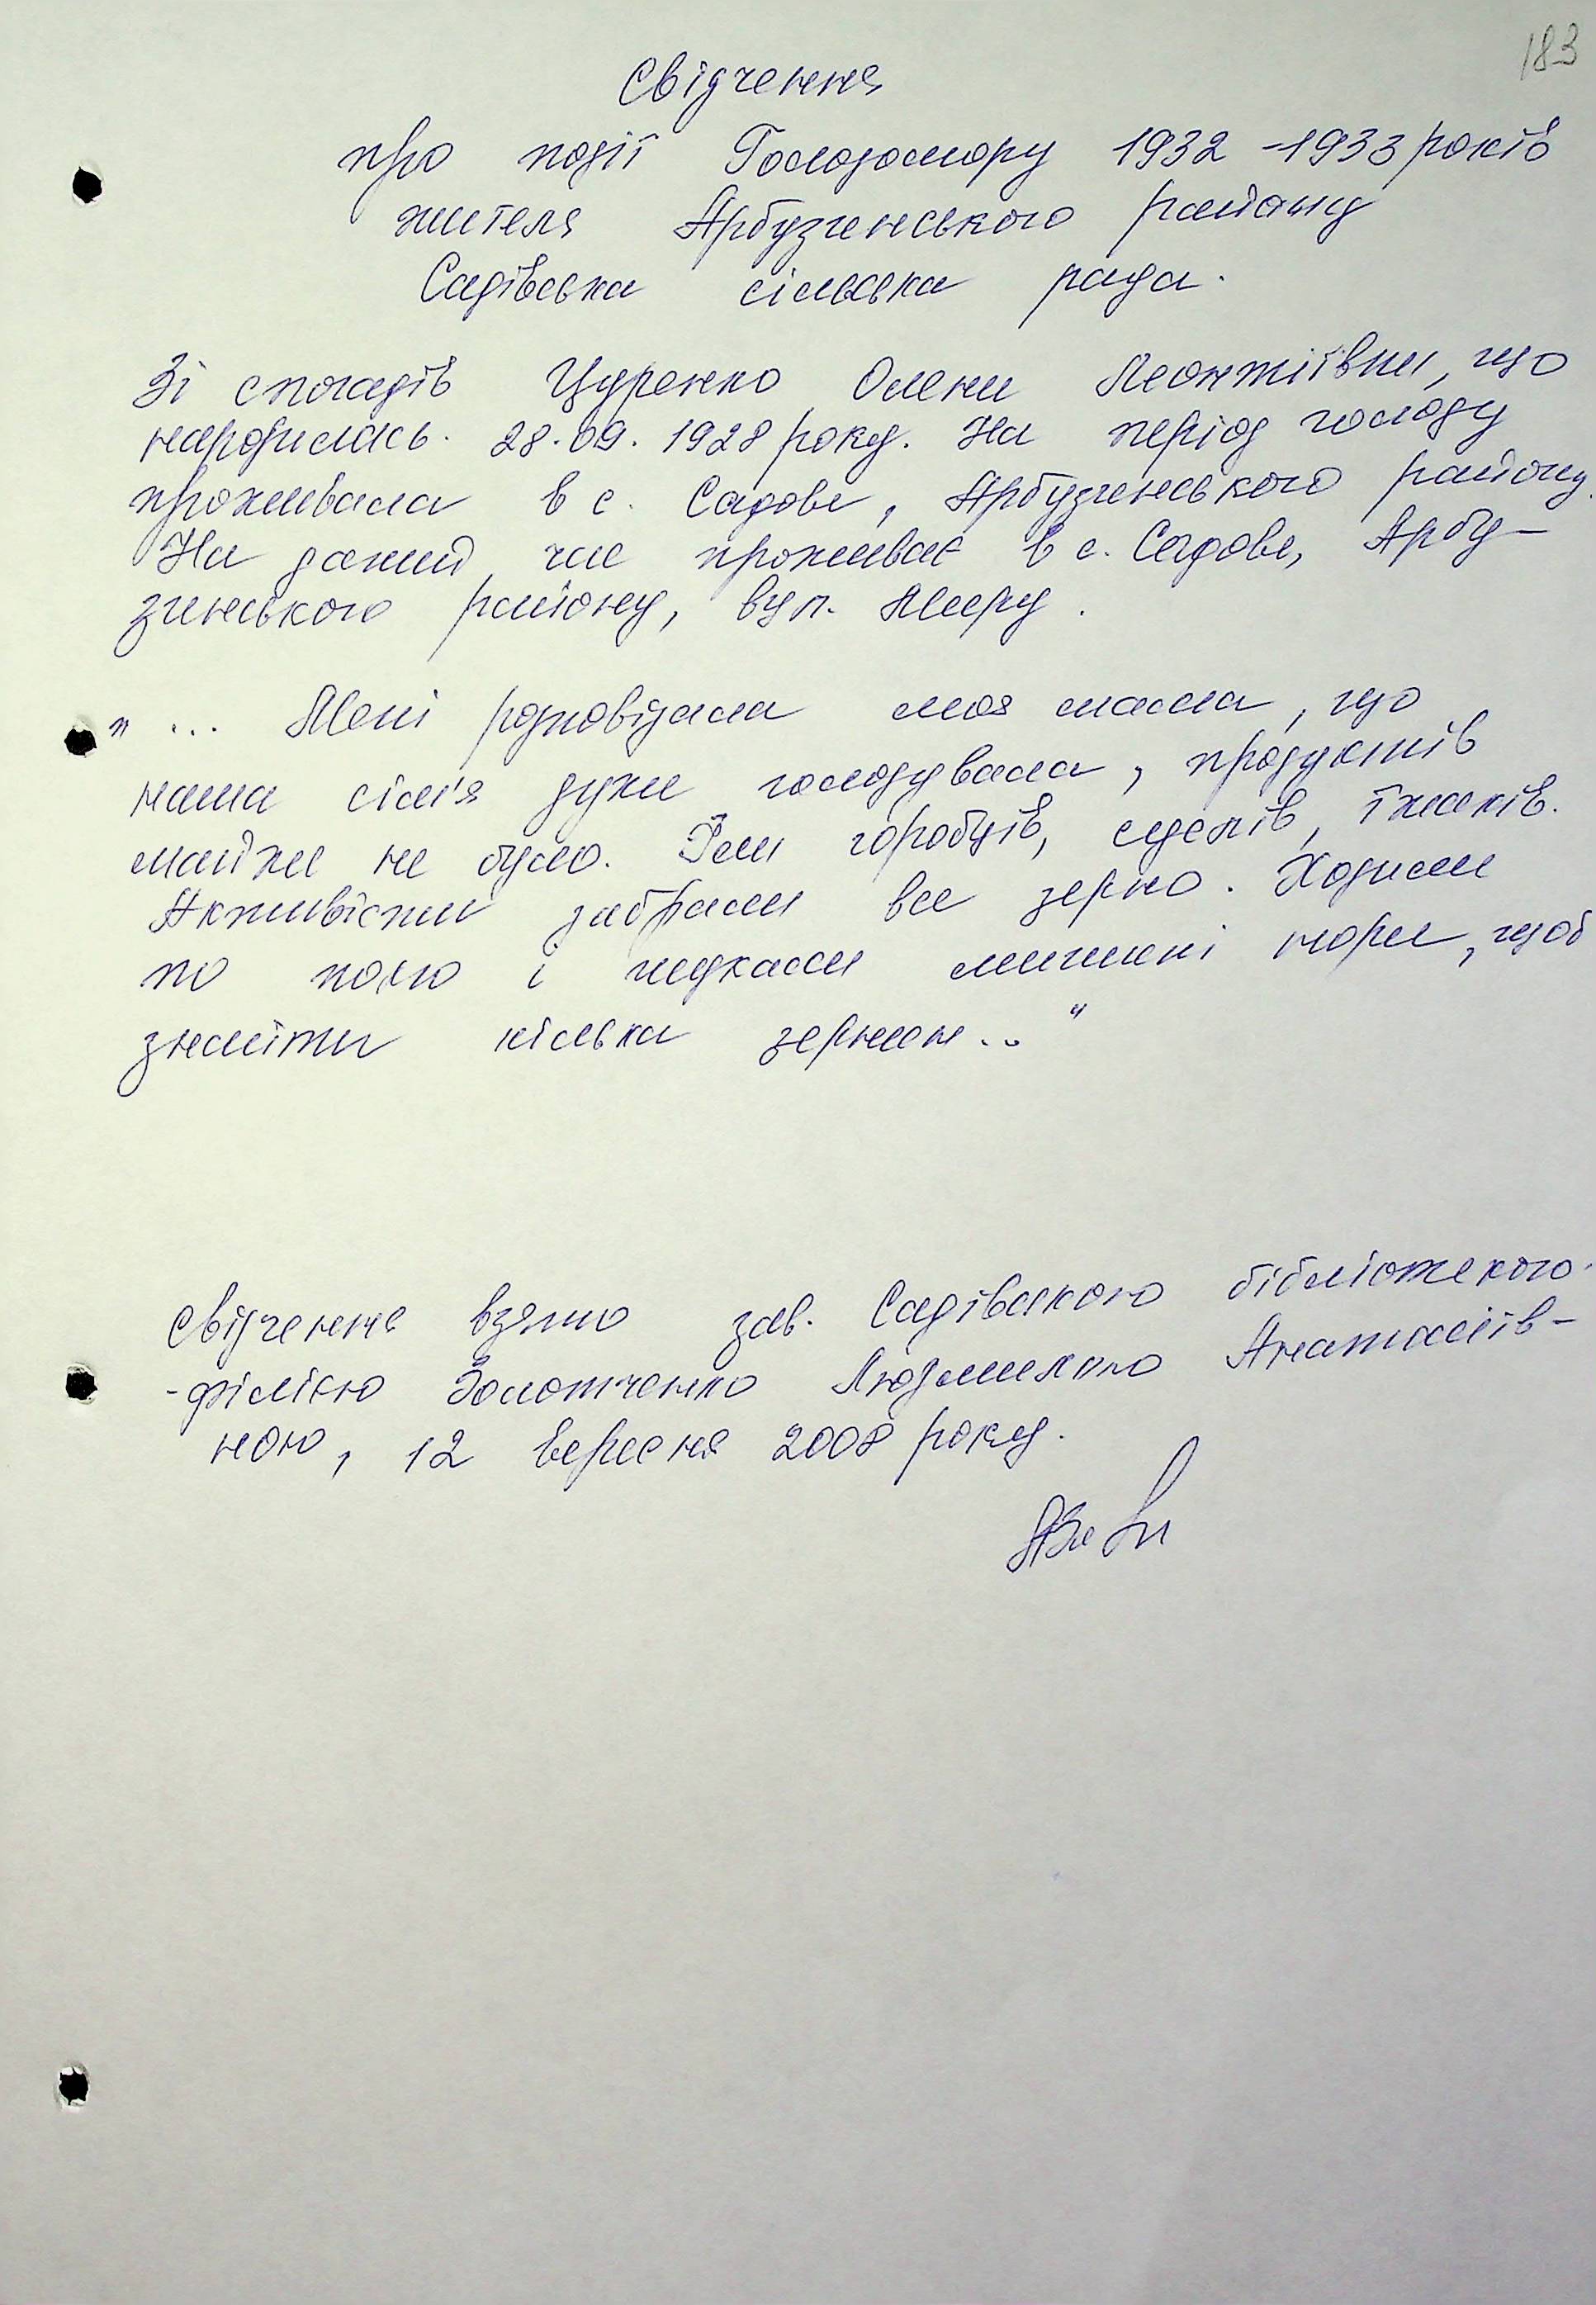 183
Свідчення
про події Голодомору 1932 - 1933 років
жителя Арбузинського району
Садівська сільська рада.
Зі спогадів Цуренко Олени Леонтіївни, що
народилась 28.09.1928 року. На період голоду
проживала в с. Садове, Арбузинського району.
На даний час проживає в с. Садове, Арбу-
зинського району, вул. Миру.
"... Мені розповідала моя мама, що
наша сім'я дуже голодувала, продуктів
майже не було. Їли горобців, їжаків.
Активісти забрали все зерно. Ходили
по полю і шукали мишині нори, щоб
знайти кілька зернин..."
Свідчення взято зав. Садівською бібліотекою-
-філією Золотченко Людмилою Анатоліїв-
ною, 12 вересня 2008 року.